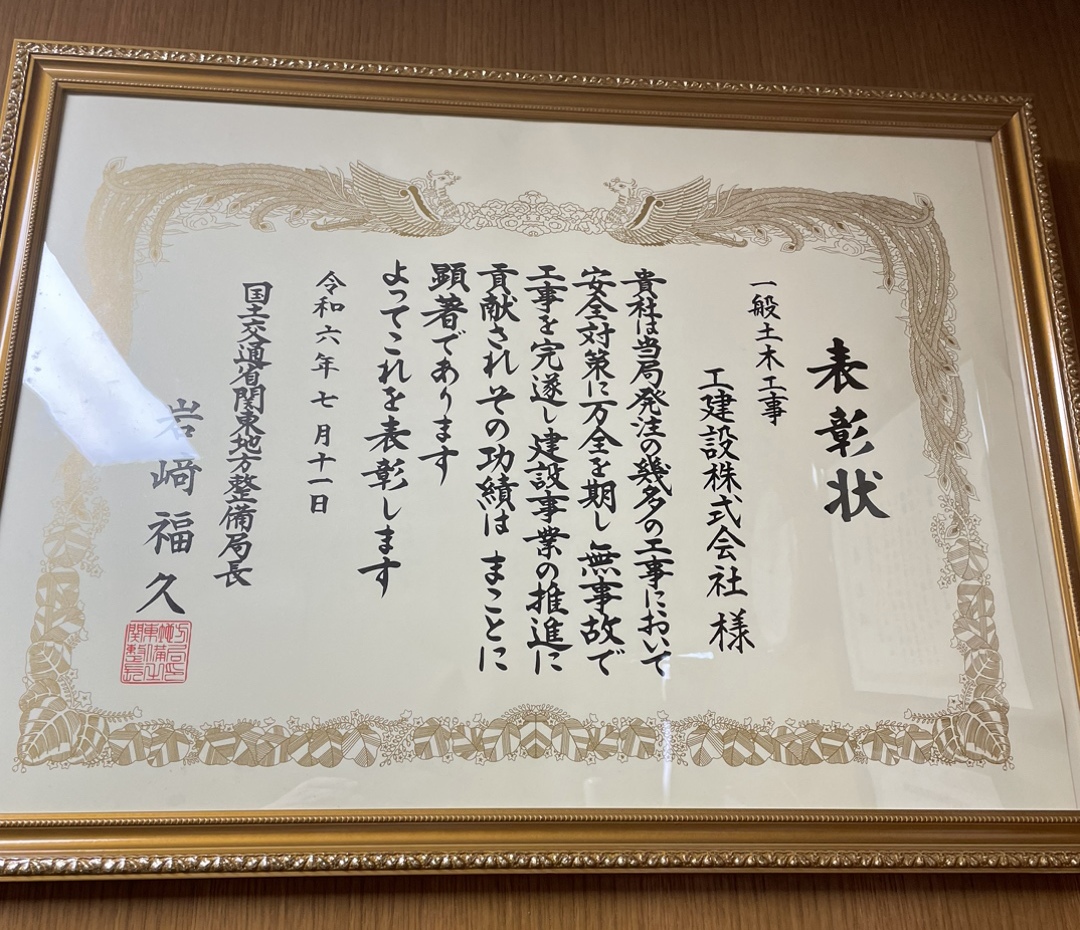 表彰状
一般土木工事
工建設株式会社 様
貴社は当局発注の幾多の工事において
安全対策に万全を期し無事故で
工事を完遂し建設事業の推進に
貢献されその功績は まことに
顕著であります
よってこれを表彰します
令和六年七月十一日
国土交通省関東地方整備局長
岩﨑福久